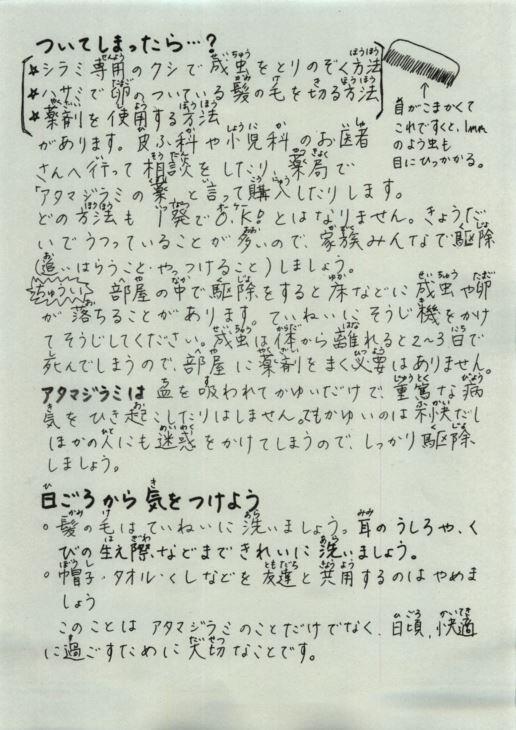 ついてしまったら…？
★シラミ専用のクシで成虫をとりのぞく方法
★ハサミで卵のついている髪の毛を切る方法
★薬剤を使用する方法
があります。皮ふ科や小児科のお医者
さんへ行って相談をしたり、薬局で
「アタマジラミの薬」と言って購入したりします。
どの方法も1発でO.K!とはなりません。きょうだ
いでうつっていることが多いので、家族みんなで駆除
(追いはらうこと・やっつけること)しましょう。
ちゅうい 部屋の中で駆除をすると床などに成虫や卵
が落ちることがあります。ていねいにそうじ機をかけ
てそうじしてください。成虫は体から離れると2~3日で
死んでしまうので、部屋に薬剤をまく必要はありません。
アタマジラミは血を吸われてかゆいだけで、重篤な病
気をひき起こしたりはしません。でもかゆいのは不快だし
ほかの人にも迷惑をかけてしまうので、しっかり駆除
しましょう。
↑
目がこまかくて
これですくと、1mm
のよう虫も
目にひっかかる。
日ごろから気をつけよう
○髪の毛はていねいに洗いましょう。耳のうしろや、く
びの生え際などまできれいに洗いましょう。
○帽子・タオル・くしなどを友達と共用するのはやめま
しょう
このことはアタマジラミのことだけでなく、日頃、快適
に過ごすために大切なことです。